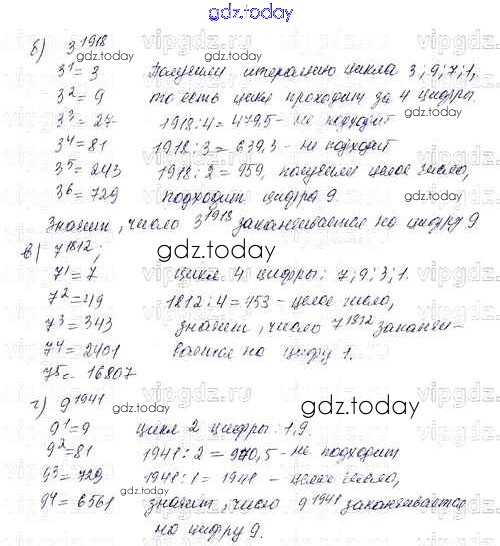 gdz.today
б) 3^1918
gdz.today
3^1 = 3 Получили итерацию цикла 3; 9; 7; 1,
3^2 = 9 то есть цикл проходит за 4 цифры.
3^3 = 27 1918 : 4 = 479,5 - не подходит
3^4 = 81 1918 : 3 = 639,3 - не подходит
3^5 = 243 1918 : 2 = 959, получили целое число,
3^6 = 729 подходит цифра 9.
Значит, число 3^1918 заканчивается на цифру 9.
в) 7^1812;
gdz.today
7^1 = 7 цикл 4 цифры: 7; 9; 3; 1.
7^2 = 49 1812 : 4 = 453 - целое число,
7^3 = 343 значит, число 7^1812 заканчи-
7^4 = 2401 вается на цифру 1.
7^5 = 16807
г) 9^1941
gdz.today
9^1 = 9 цикл 2 цифры: 1, 9.
9^2 = 81 1941 : 2 = 970,5 - не подходит
9^3 = 729 1941 : 1 = 1941 - целое число,
9^4 = 6561 значит, число 9^1941 заканчивается
gdz.today
на цифру 9.
vipgdz.ru